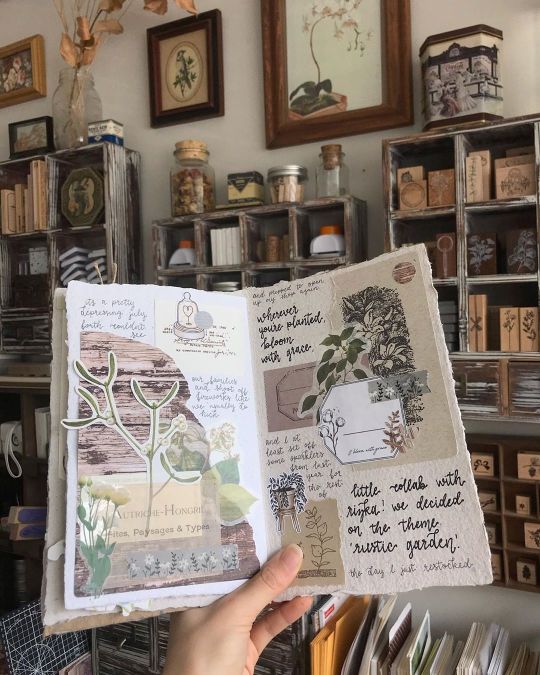 its a pretty
depressing july
forth couldnt
see
our families
and shoot off
fireworks like
we usually do
AUTRICHE-HONGRIE
Sites, Paysages & Types
and prepped to open
up my shop again
wherever
you're planted,
bloom
with grace.
and i at
least set off
some sparklers
from last
year for
the rest
of
& bloom with grace
little collab with
rizka! we decided
on the theme
'rustic garden'.
the day I just restocked